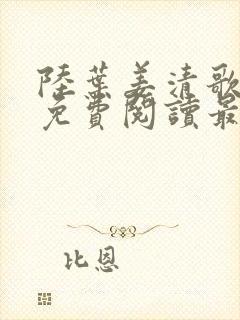 陸葉姜清歌
免費閱讀最
比恩